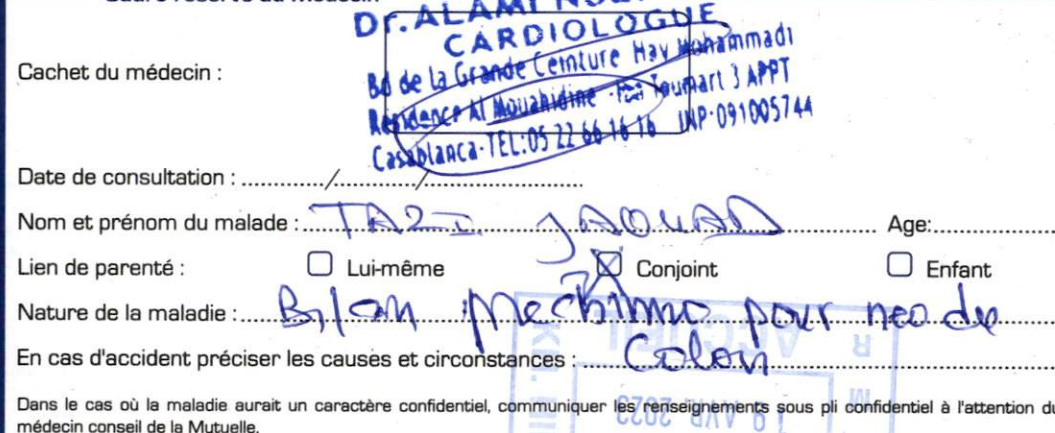 Cachet du médecin :
Dr. ALAMI
CARDIOLOGUE
Bd de La Grande Ceinture Hay Mohammadi
Résidence Al Mouahidine Toumart 3 APPT
Casablanca-TEL:05 22 66 16 16 INP:091005744
Date de consultation : ............/............/......................
Nom et prénom du malade : TAZI JAOUAD Age:
Lien de parenté : Lui-même Conjoint Enfant
Nature de la maladie : Bilan prechimio pour neo de
Colon
En cas d'accident préciser les causes et circonstances :
ACCUEIL
19 AVR 2023
Dans le cas où la maladie aurait un caractère confidentiel, communiquer les renseignements sous pli confidentiel à l'attention du
médecin conseil de la Mutuelle.